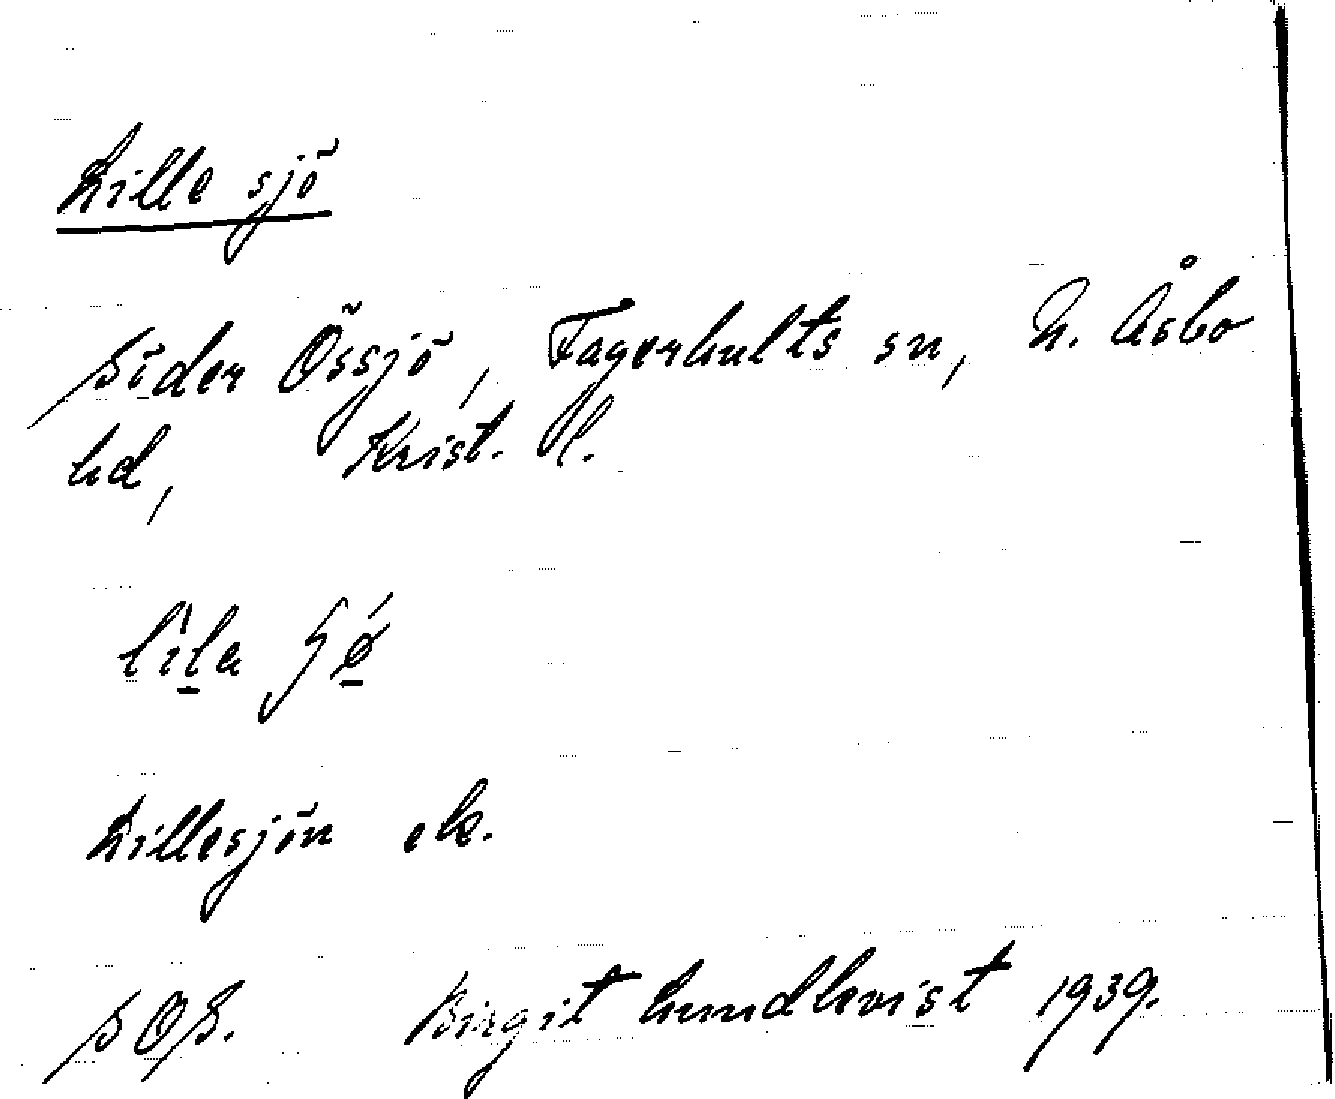 Lille sjö
Söder Össjö, Fagerhults sn, N. Åsbo
hd, Krist. l.
lila
Lillesjön ek.
SOS. Birgit Lundkvist 1939.